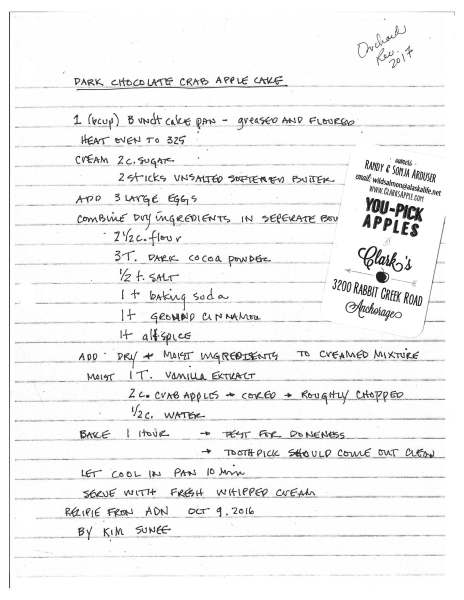 Orchard
Rec.
2017
DARK CHOCOLATE CRAB APPLE CAKE
1 (cup) BUNDT CAKE PAN - GREASED AND FLOURED
HEAT OVEN TO 325
CREAM 2 C. SUGAR
2 STICKS UNSALTED SOFTENED BUTTER
ADD 3 LARGE EGGS
COMBINE DRY INGREDIENTS IN SEPERATE BOW
2 1/2 C. flour
3 T. DARK COCOA POWDER
1/2 t. SALT
1 t baking soda
1 t GROUND CINNAMON
1 t allSPICE
ADD DRY + MOIST INGREDIENTS TO CREAMED MIXTURE
MOIST 1 T. VANILLA EXTRACT
2 C. CRAB APPLES → CORED → ROUGHLY CHOPPED
1/2 C. WATER
BAKE 1 HOUR → TEST FOR DONENESS
→ TOOTHPICK SHOULD COME OUT CLEAN
LET COOL IN PAN 10 Min
SERVE WITH FRESH WHIPPED CREAM
RECIPIE FROM ADN OCT 9, 2016
BY KIM SUNEE
owners
RANDY & SONJA AROUSER
email: wildsalmon@alaskalife.net
WWW.CLARKSAPPLE.COM
YOU-PICK
APPLES
@
Clark's
3200 RABBIT CREEK ROAD
Anchorage